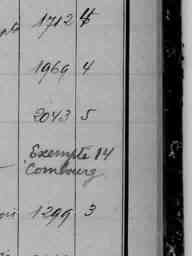 1712 4
1969 4
2043 5
Exempte 14
Combourg
1299 3